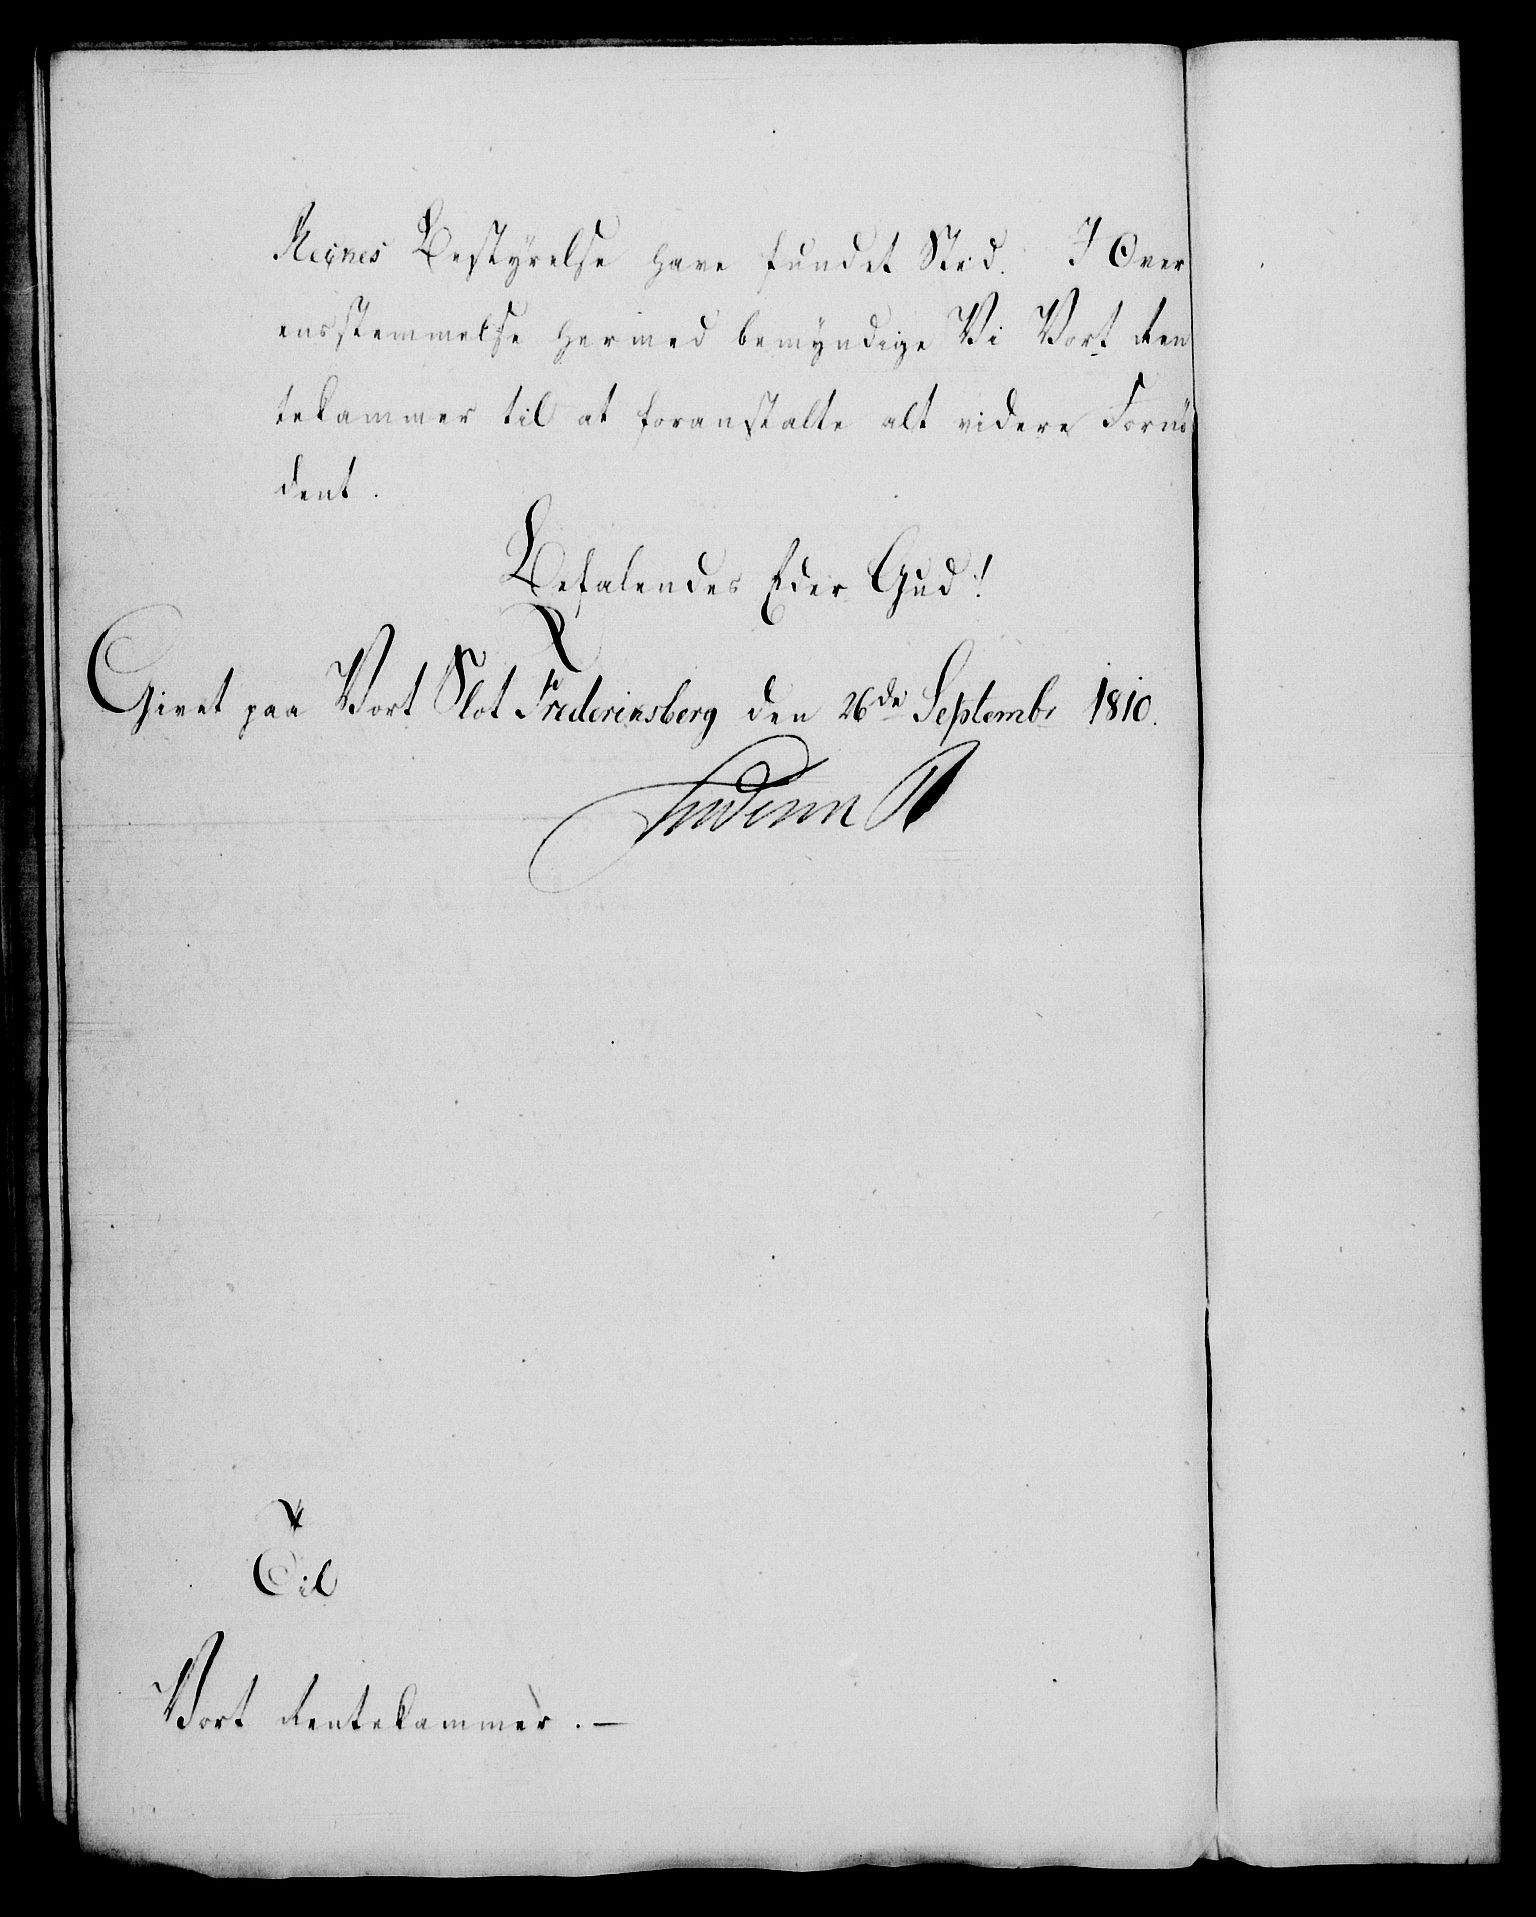 Regnes Bestyrelse have fundet Sted. I Over
ensstemmelse hermed bemyndige Vi Vort Ren
tekammer til at foranstalte alt videre Fornö
dent.
Befalendes Eder Gud!
Givet paa Vort Slot Fredericsberg den 26de Septembr 1810.
Frederik R
Til
Vort Rentekammer. —